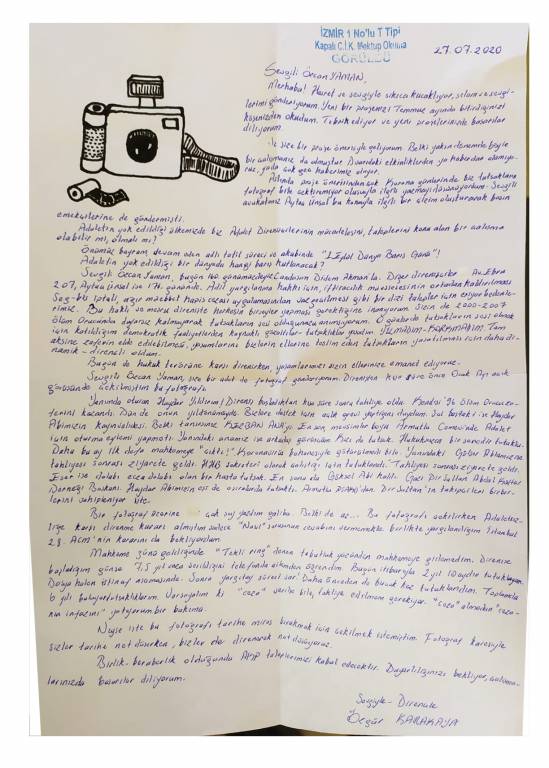 İZMİR 1 No'lu T Tipi
Kapalı C.İ.K. Mektup Okuma
GÖRÜLDÜ
27.07.2020
Sevgili Özcan YAMAN,
Merhaba! Hasret ve sevgiyle sıkıca kucaklıyor, selam ve sevgi-
lerimi gönderiyorum. Yeni bir projenizi Temmuz ayında bitirdiğinizi
köşenizden okudum. Tebrik ediyor ve yeni projelerinizde başarılar
diliyorum.
size bir proje önerisiyle geliyorum. Belki yakın dönemde böyle
bir çalışmanız da olmuştur. Dışarıdaki etkinliklerden ya haberdar olamıyo-
ruz, ya da çok geç haberimiz oluyor.
Aslında proje önerisinden çok Korona günlerinde biz tutsaklara
fotoğraf bile çektirmiyor oluşuyla ilgili yazmayı düşünüyordum. Sevgili
avukatımız Aytaç Ünsal bu konuyla ilgili bir dilim oluşturarak basın
emekçilerine de göndermişti.
Adaletin yok edildiği ülkemizde biz Adalet Direnişçilerinin mücadelesini, taleplerini konu alan bir çalışma
olabilir mi, olmalı mı?
Önümüz bayram, devam eden adli tatil süreci ve akabinde "1 Eylül Dünya Barış Günü"!
Adaletin yok edildiği bir dünyada hangi barış kutlanacak?
Sevgili Özcan Yaman, bugün 160. günümüzdeyiz Candaşım Didem Akman'la. Diğer direnişçiler Av. Ebru
207, Aytaç Ünsal ise 176. gününde. Adil yargılanma hakkı için, iftiracılık müessesesinin ortadan kaldırılması
Seg-bis iptali, ağır müebbet hapis cezası uygulamasından vazgeçilmesi gibi bir dizi talepler için eriyor bedenle-
rimiz. Bu haklı ve meşru direnişte herkesin birşeyler yapması gerektiğine inanıyorum. Sizin de 2000-2007
Ölüm Orucunda duyarsız kalmayarak tutsakların sesi olduğunuzu anımsıyorum. O günlerde tutsakların sesi olmak
için katıldığım demokratik faaliyetlerden kaynaklı gözaltılar-tutsaklıklar yaşadım. YILMADIM-KORKMADIM. Tam
aksine zaferin elde edilebilmesi, yaşamlarını bizlerin ellerine teslim eden tutsakların yaşatılması için daha di-
namik-direngeli oldum.
Bugün de hukuk terörüne karşı direnirken, yaşamlarımızı sizin ellerinize emanet ediyoruz.
Sevgili Özcan Yaman, size bir adet de fotoğraf gönderiyorum. Direnişten kısa süre önce Ocak ayı açık
görüşünde çekilmiştim bu fotoğrafı.
Yanımda oturan Haydar Yıldırım! Direniş başladıktan kısa süre sonra tahliye oldu. Kendisi '96 Ölüm Orucu ve-
teranı kazandı. Dün de onun yıldönümüydü. Bizlere destek için açlık grevi yaptığını duydum. Sol baştaki ise Haydar
Abimizin kayınvalidesi. Belki tanırsınız KEZBAN ANA'yı. En son mevsimler boyu Armutlu Cemevinde Adalet
için oturma eylemi yapmıştı. Yanındaki annemiz ise arkadaş görüşünden. Kızı da tutsak. Hukukmuza bir senedir tutuklu.
Daha bu ay ilk defa mahkemeye "çıktı!" Koronavirüs bahanesiyle götürülmedi bile. Yanındaki Oğlum Ablamız ise
tahliyesi sonrası ziyarete geldi. HHB sekreteri olarak çalıştığı için tutuklandı. Tahliyesi sonrası ziyarete geldi.
Eser ise dolabı ecza dolabı olan bir hasta tutsak. En sonu da Göksel Abi kaldı. Gazi Pir Sultan Abdal Kültür
Derneği Başkanı. Haydar Abimizin eşi de sıralarda tutsaktı. Armutlu PSAKD'dan. Pir Sultan'ın takipçileri birbir-
lerini sahipleniyor işte.
Bir fotoğraf üzerine çok şey yazdım galiba. Belki de az... Bu fotoğraf çekilirken Adaletsiz-
liğe karşı direnme kararı almıştım sadece. "Nasıl" sorusunun cevabını vermemekle birlikte yargılandığım İstanbul
28. ACM'nin kararını da bekliyordum.
Mahkeme günü geldiğinde "Tekli ring" denen tabutluk yüzünden mahkemeye gidemedim. Direnişe
başladığım günse 7,5 yıl ceza verildiğini telefonda ailemden öğrendim. Bugün itibarıyla 2 yıl 10 aydır tutukluyum.
Dosya halen istinaf aşamasında. Sonra yargıtay süreci var. Daha önceden de birçok kez tutuklandım. Toplamda
6 yılı buluyor tutsaklıklarım. Varsayalım ki "ceza" verilse bile, tahliye edilmem gerekiyor. "Ceza" almadan "ceza-
nın infazını" yatıyorum bir bakıma.
Neyse işte bu fotoğrafı tarihe miras bırakmak için çekilmek istemiştim. Fotoğraf karesiyle
sizler tarihe not düşerken, bizler de direnerek not düşüyoruz.
Birlik-beraberlik olduğunda AKP taleplerimizi kabul edecektir. Duyarlılığınızı bekliyor, çalışma-
larınızda başarılar diliyorum.
Sevgiyle - Direnişle
Özgür KARAKAYA